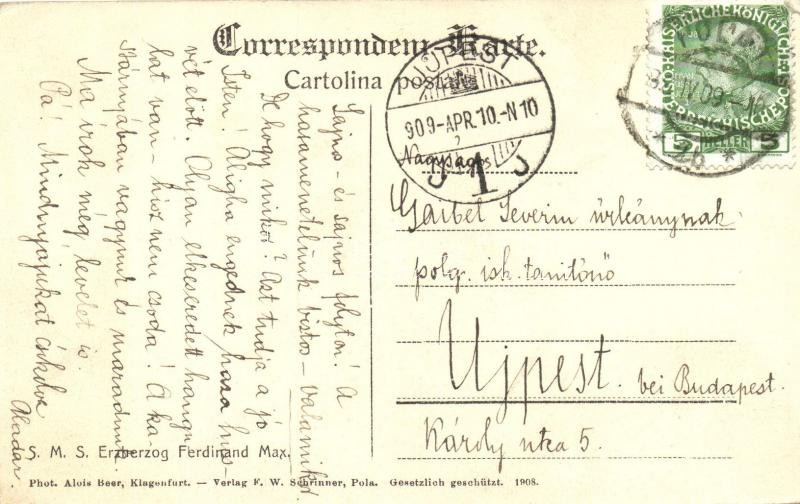 Correspondenz-Karte.
Cartolina postale
UJPEST
909-APR.10.-N10
1
KAISERLICHE KÖNIGLICHE
ÖSTERREICHISCHE POST
5 HELLER 5
POLA
Nagyságos
Gaibel Severin úrleánynak
polg. isk. tanítónő
Ujpest. bei Budapest.
Károly utca 5.
Sajna - és sajnos folyton! A
hazamenetelünk biztos - valamikor
De hogy mikor? Azt tudja a jó
Isten! Aligha engednek haza hús-
vét előtt. Olyan elkeseredett hangu-
lat van - hisz nem csoda! A ka-
szárnyában vagyunk és maradunk.
Ma irok még levelet is.
Pá! Mindnyájukat csókolva
Aladár.
S. M. S. Erzherzog Ferdinand Max.
Phot. Alois Beer, Klagenfurt. — Verlag F. W. Schrinner, Pola. Gesetzlich geschützt. 1908.